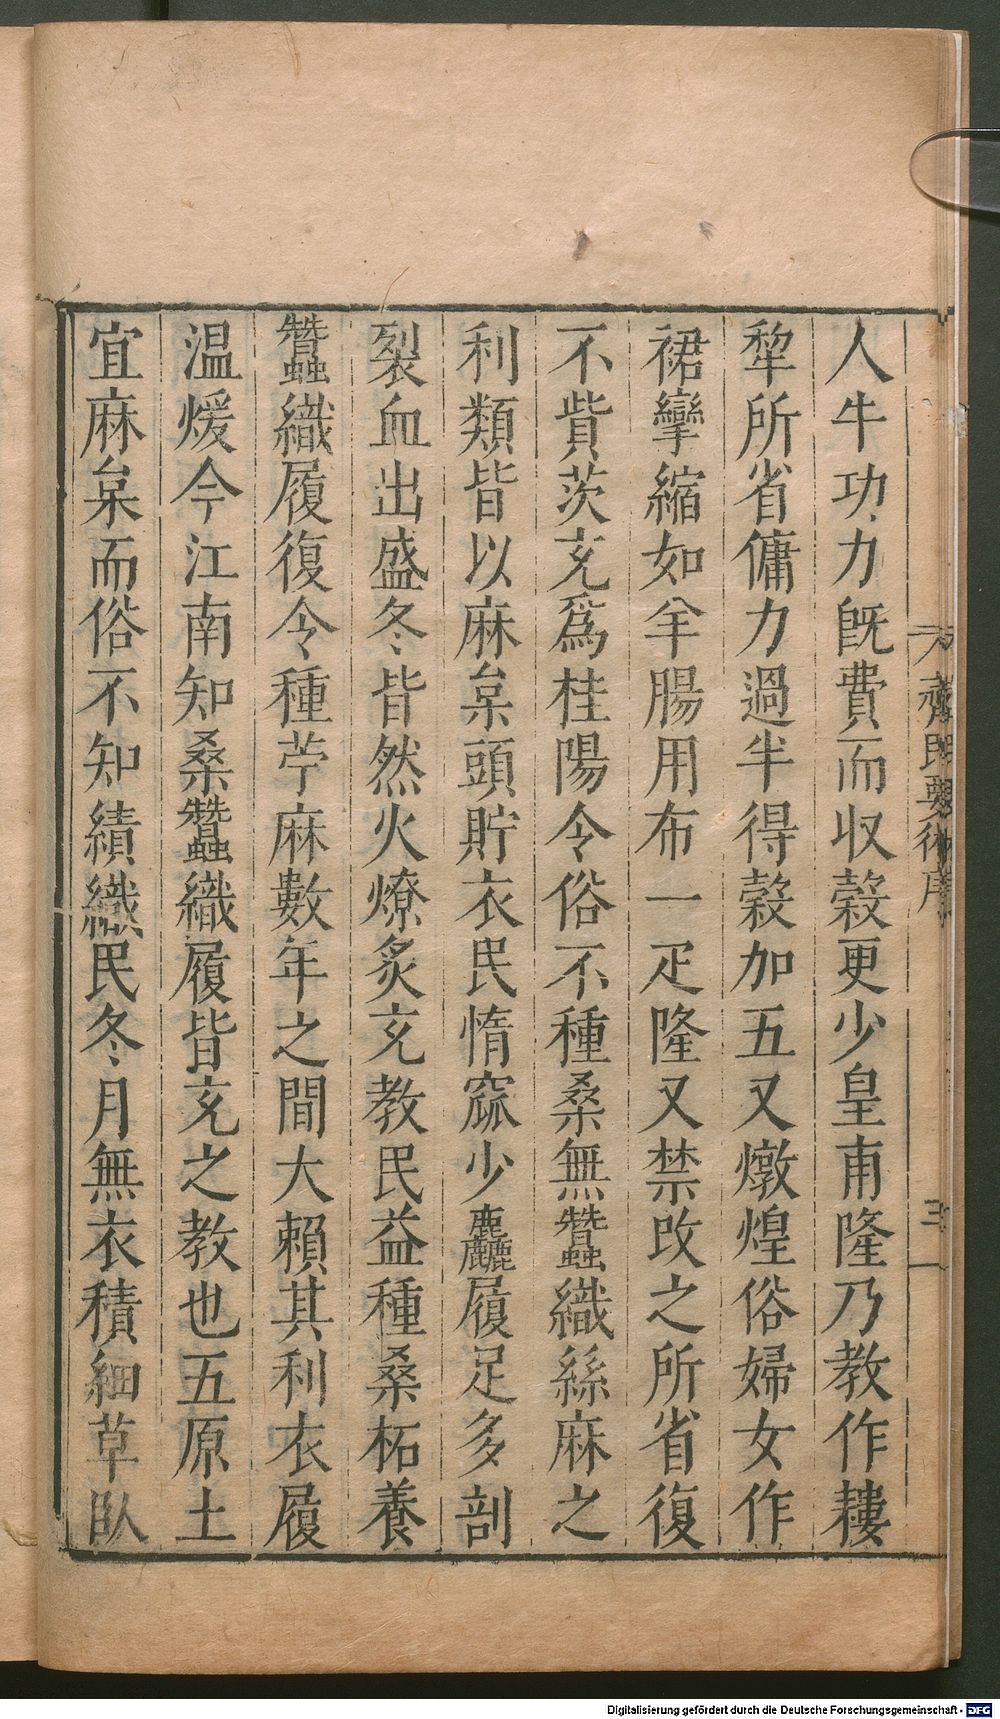 人牛功力旣費而収穀更少皇甫隆乃教作耬
犂所省傭力過半得穀加五又燉煌俗婦女作
裙攣縮如羊腸用布一疋隆又禁改之所省復
不貲茨充爲桂陽令俗不種桑無蠶織絲麻之
利類皆以麻枲頭貯衣民惰窳少麤履足多剖
裂血出盛冬皆然火燎炙充教民益種桑柘養
蠶織履復令種苧麻數年之間大賴其利衣履
温煖今江南知桑蠶織履皆充之教也五原土
宜麻枲而俗不知績織民冬月無衣積細草臥
齊民要術序
三
Digitalisierung gefördert durch die Deutsche Forschungsgemeinschaft - DFG